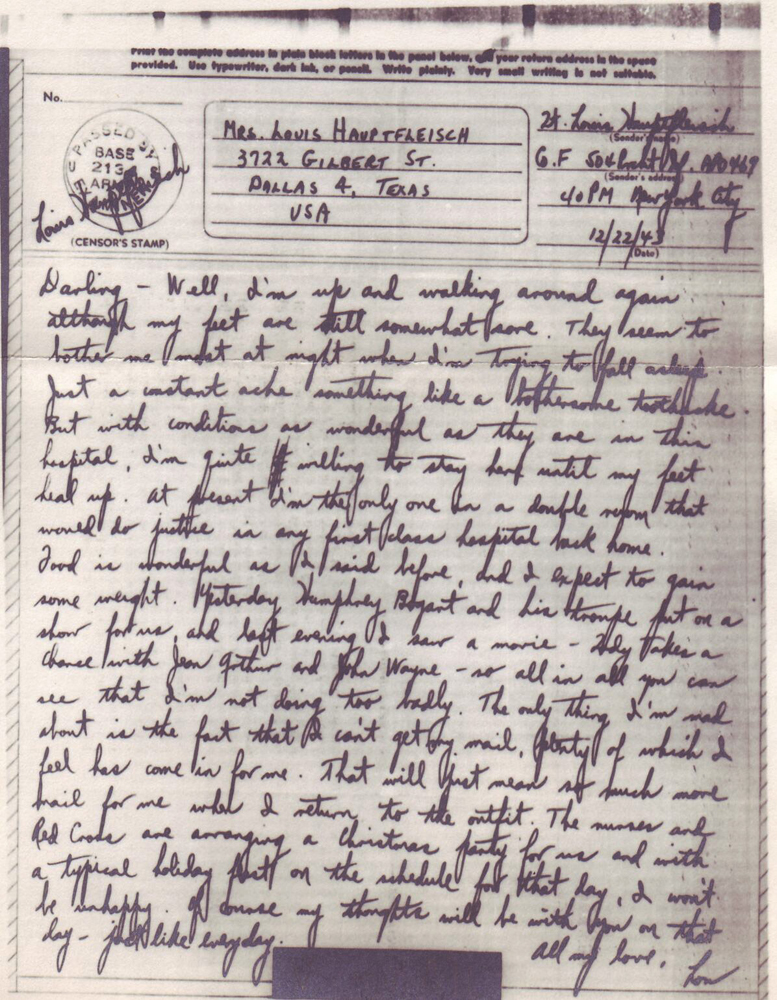 Print the complete address in plain block letters in the panel below, and your return address in the space
provided. Use typewriter, dark ink, or pencil. Write plainly. Very small writing is not suitable.
No.
PASSED BY
BASE
213
ARMY
Louis Hauptfleisch
(CENSOR'S STAMP)
MRS. LOUIS HAUPTFLEISCH
3722 GILBERT ST.
DALLAS 4, TEXAS
USA
Lt. Louis Hauptfleisch
(Sender's name)
Co. F 504 Prcht Inf. APO 469
(Sender's address)
℅ PM New York City
12/22/43
(Date)
Darling - Well, I'm up and walking around again
although my feet are still somewhat sore. They seem to
bother me most at night when I'm trying to fall asleep.
Just a constant ache something like a bothersome toothache.
But with conditions as wonderful as they are in this
hospital, I'm quite willing to stay here until my feet
heal up. At present I'm the only one in a double room that
would do justice in any first class hospital back home.
Food is wonderful as I said before, and I expect to gain
some weight. Yesterday Humphrey Bogart and his troupe put on a
show for us, and last evening I saw a movie - Lady Takes a
Chance with Jean Arthur and John Wayne - so all in all you can
see that I'm not doing too badly. The only thing I'm mad
about is the fact that I can't get my mail, plenty of which I
feel has come in for me. That will just mean so much more
mail for me when I return to the outfit. The nurses and
Red Cross are arranging a Christmas party for us and with
a typical holiday feast on the schedule for that day, I won't
be unhappy. Of course my thoughts will be with you on that
day - just like everyday.
All my love,
Lou